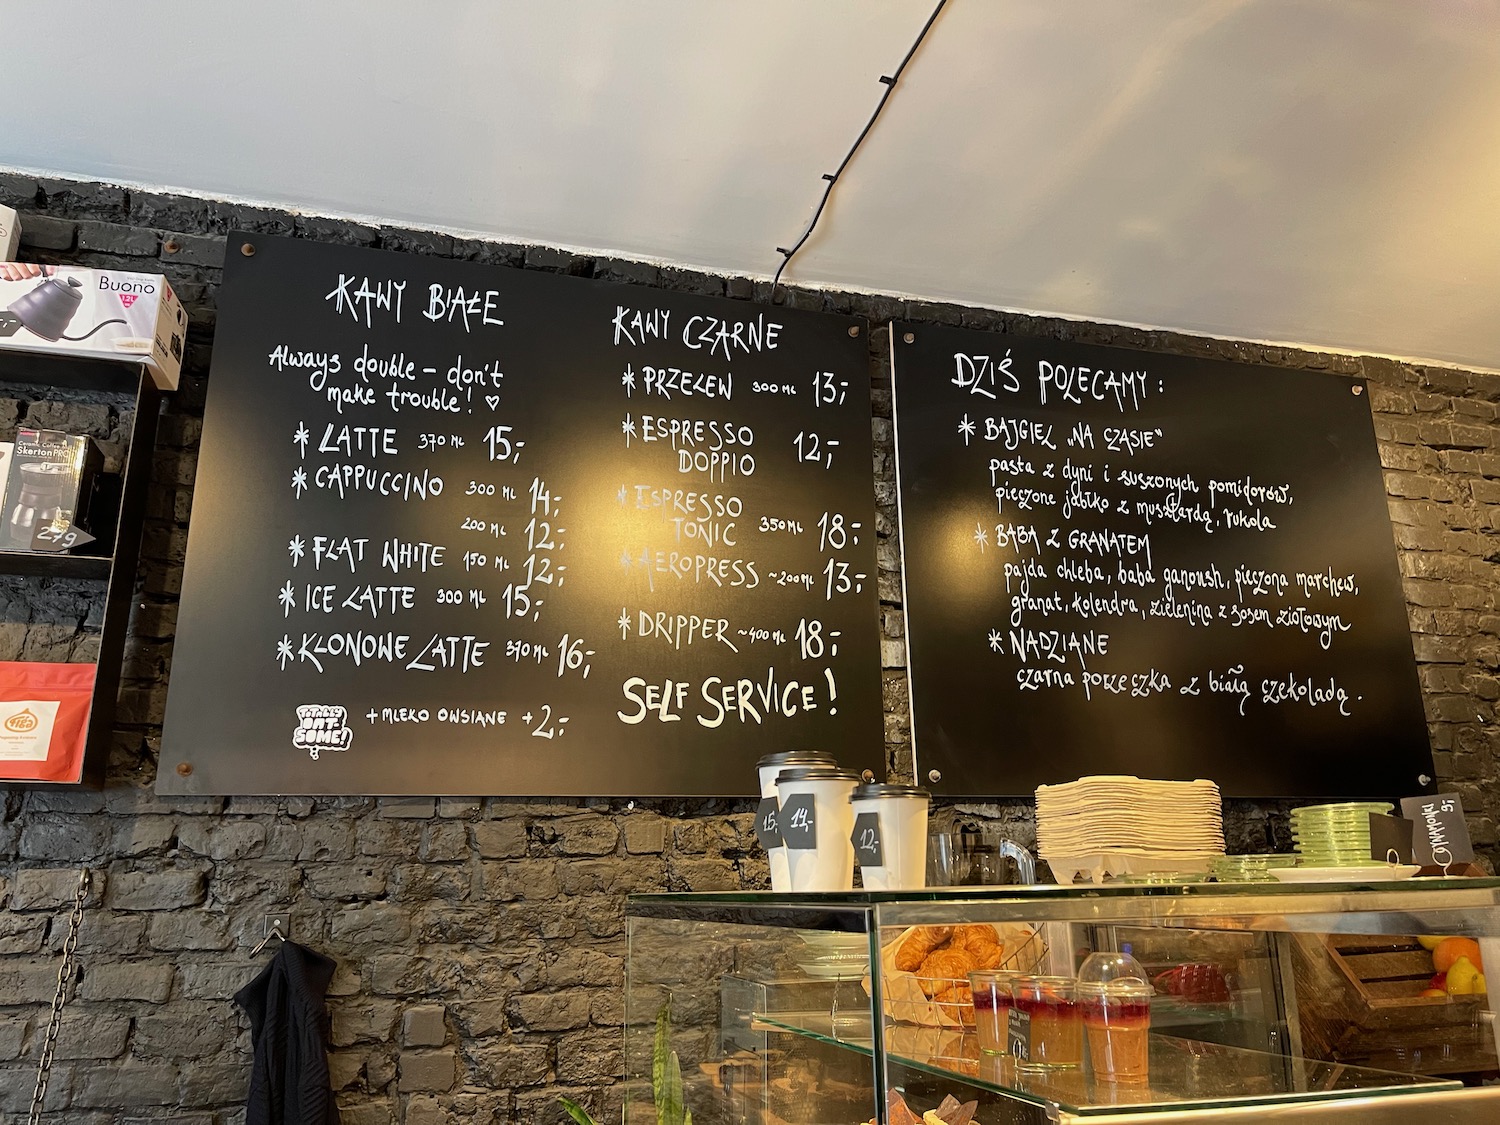 KAWY BIAŁE
Always double – don't
make trouble! ♡
* LATTE 370 ML 15,-
* CAPPUCCINO 300 ML 14,-
200 ML 12,-
* FLAT WHITE 150 ML 12,-
* ICE LATTE 300 ML 15,-
* KLONOWE LATTE 370 ML 16,-
TOTALLY
OAT-
SOME!
+ MLEKO OWSIANE +2,-
KAWY CZARNE
* PRZELEW 300 ML 13,-
* ESPRESSO
DOPPIO 12,-
* ESPRESSO
TONIC 350 ML 18,-
* AEROPRESS ~200 ML 13,-
* DRIPPER ~400 ML 18,-
SELF SERVICE!
DZIŚ POLECAMY:
* BAJGIEL „NA CZASIE"
pasta z dyni i suszonych pomidorów,
pieczone jabłko z musztardą, rukola
* BABA Z GRANATEM
pajda chleba, baba ganoush, pieczona marchew,
granat, kolendra, zielenina z sosem ziołowym
* NADZIANE
czarna porzeczka z białą czekoladą.
Buono
1.2L
Ceramic Coffee Mill
SkertonPRO
279
figa
15,-
14,-
12,-